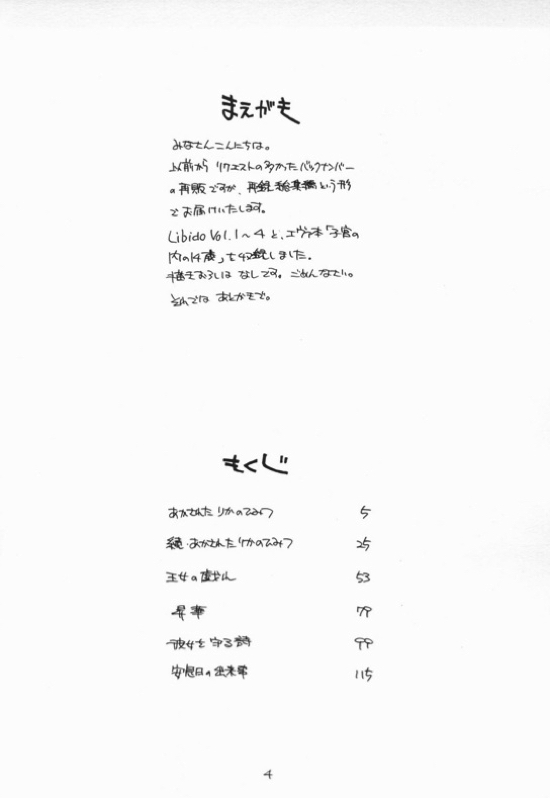 まえがき
みなさんこんにちは。
以前から リクエストの多かったバックナンバー
の再販ですが、再録総集編という形
でお届けいたします。
Libido Vol.1〜4 と、エヴァ本「子宮の
内の14歳」を収録しました。
描きおろしは なしです。ごめんなさい。
それでは あとがきで。
もくじ
あかされたりかのひみつ 5
続・あかされたりかのひみつ 25
王女の 53
昇華 79
彼女を守る 99
安息日の 115
4